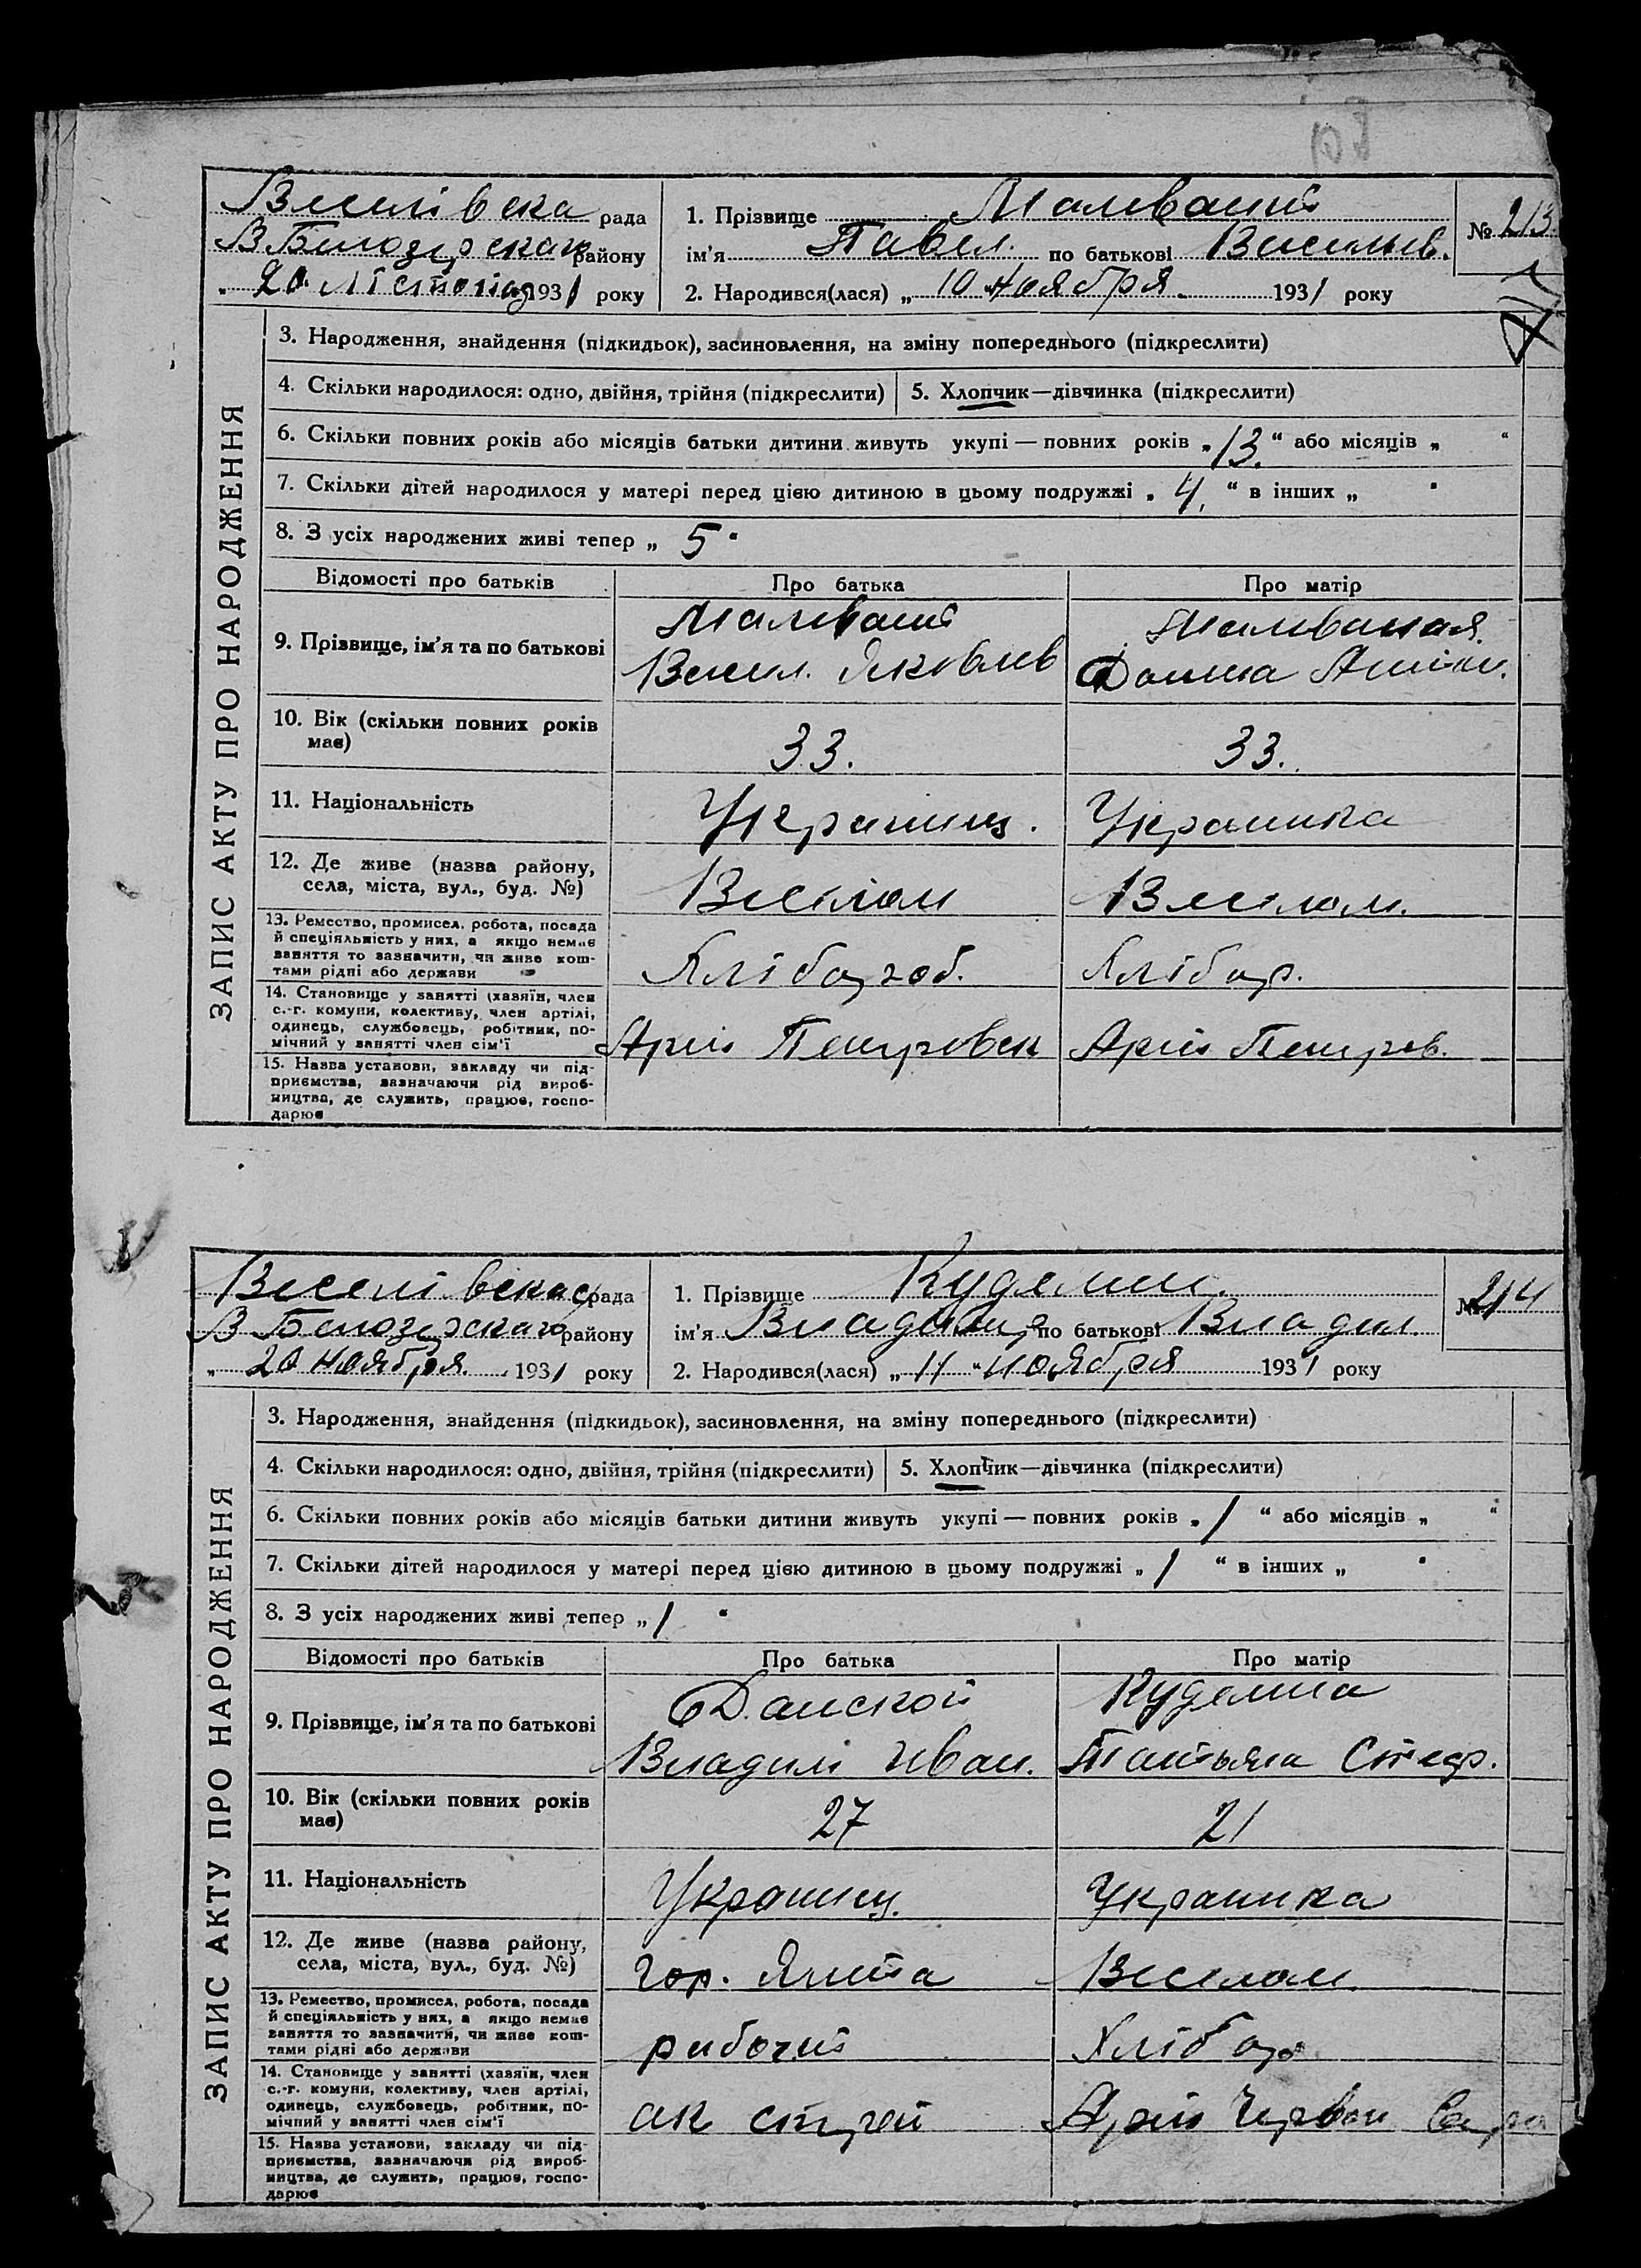 Веселівска рада
В Білозерського району
„ 20 Листопад 1931 року
1. Прізвище Маливаний
ім'я Павел. по батькові Васильев.
2. Народився(лася) „ 10 " ноября 1931 року
№ 213.
ЗАПИС АКТУ ПРО НАРОДЖЕННЯ
3. Народження, знайдення (підкидьок), засиновлення, на зміну попереднього (підкреслити)
4. Скільки народилося: одно, двійня, трійня (підкреслити) 5. Хлопчик—дівчинка (підкреслити)
6. Скільки повних років або місяців батьки дитини живуть укупі — повних років „ 13. “ або місяців „ “
7. Скільки дітей народилося у матері перед цією дитиною в цьому подружжі „ 4. “ в інших „ “
8. З усіх народжених живі тепер „ 5 “
Відомості про батьків Про батька Про матір
9. Прізвище, ім'я та по батькові
Маливаний Маливаная.
Васил. Яковлев Домна
10. Вік (скільки повних років має) 33. 33.
11. Національність Украинец. Украинка
12. Де живе (назва району, села, міста, вул., буд. №) Веселом Веселом.
13. Ремество, промисел, робота, посада й спеціяльність у них, а якщо немає заняття то зазначити, чи живе коштами рідні або держави Хлібороб. Хлібор.
14. Становище у занятті (хазяїн, член с.-г. комуни, колективу, член артілі, одинець, службовець, робітник, помічний у занятті член сім'ї Петровск Петров.
15. Назва установи, закладу чи підприємства, зазначаючи рід виробництва, де служить, працює, господарює
Веселівская рада
В Білозерського району
„ 20 ноября. 1931 року
1. Прізвище Куделин.
ім'я Владимир по батькові Владим.
2. Народився(лася) „ 11 “ ноября 1931 року
№ 214
ЗАПИС АКТУ ПРО НАРОДЖЕННЯ
3. Народження, знайдення (підкидьок), засиновлення, на зміну попереднього (підкреслити)
4. Скільки народилося: одно, двійня, трійня (підкреслити) 5. Хлопчик—дівчинка (підкреслити)
6. Скільки повних років або місяців батьки дитини живуть укупі — повних років „ 1 “ або місяців „ “
7. Скільки дітей народилося у матері перед цією дитиною в цьому подружжі „ 1 “ в інших „ “
8. З усіх народжених живі тепер „ 1 “
Відомості про батьків Про батька Про матір
9. Прізвище, ім'я та по батькові
Донской Куделина
Владим Иван. Татьяна Стеф.
10. Вік (скільки повних років має) 27 21
11. Національність Украинец. Украинка
12. Де живе (назва району, села, міста, вул., буд. №) гор. Ялта Веселом
13. Ремество, промисел, робота, посада й спеціяльність у них, а якщо немає заняття то зазначити, чи живе коштами рідні або держави рабочий Хлібор
14. Становище у занятті (хазяїн, член с.-г. комуни, колективу, член артілі, одинець, службовець, робітник, помічний у занятті член сім'ї Червон
15. Назва установи, закладу чи підприємства, зазначаючи рід виробництва, де служить, працює, господарює